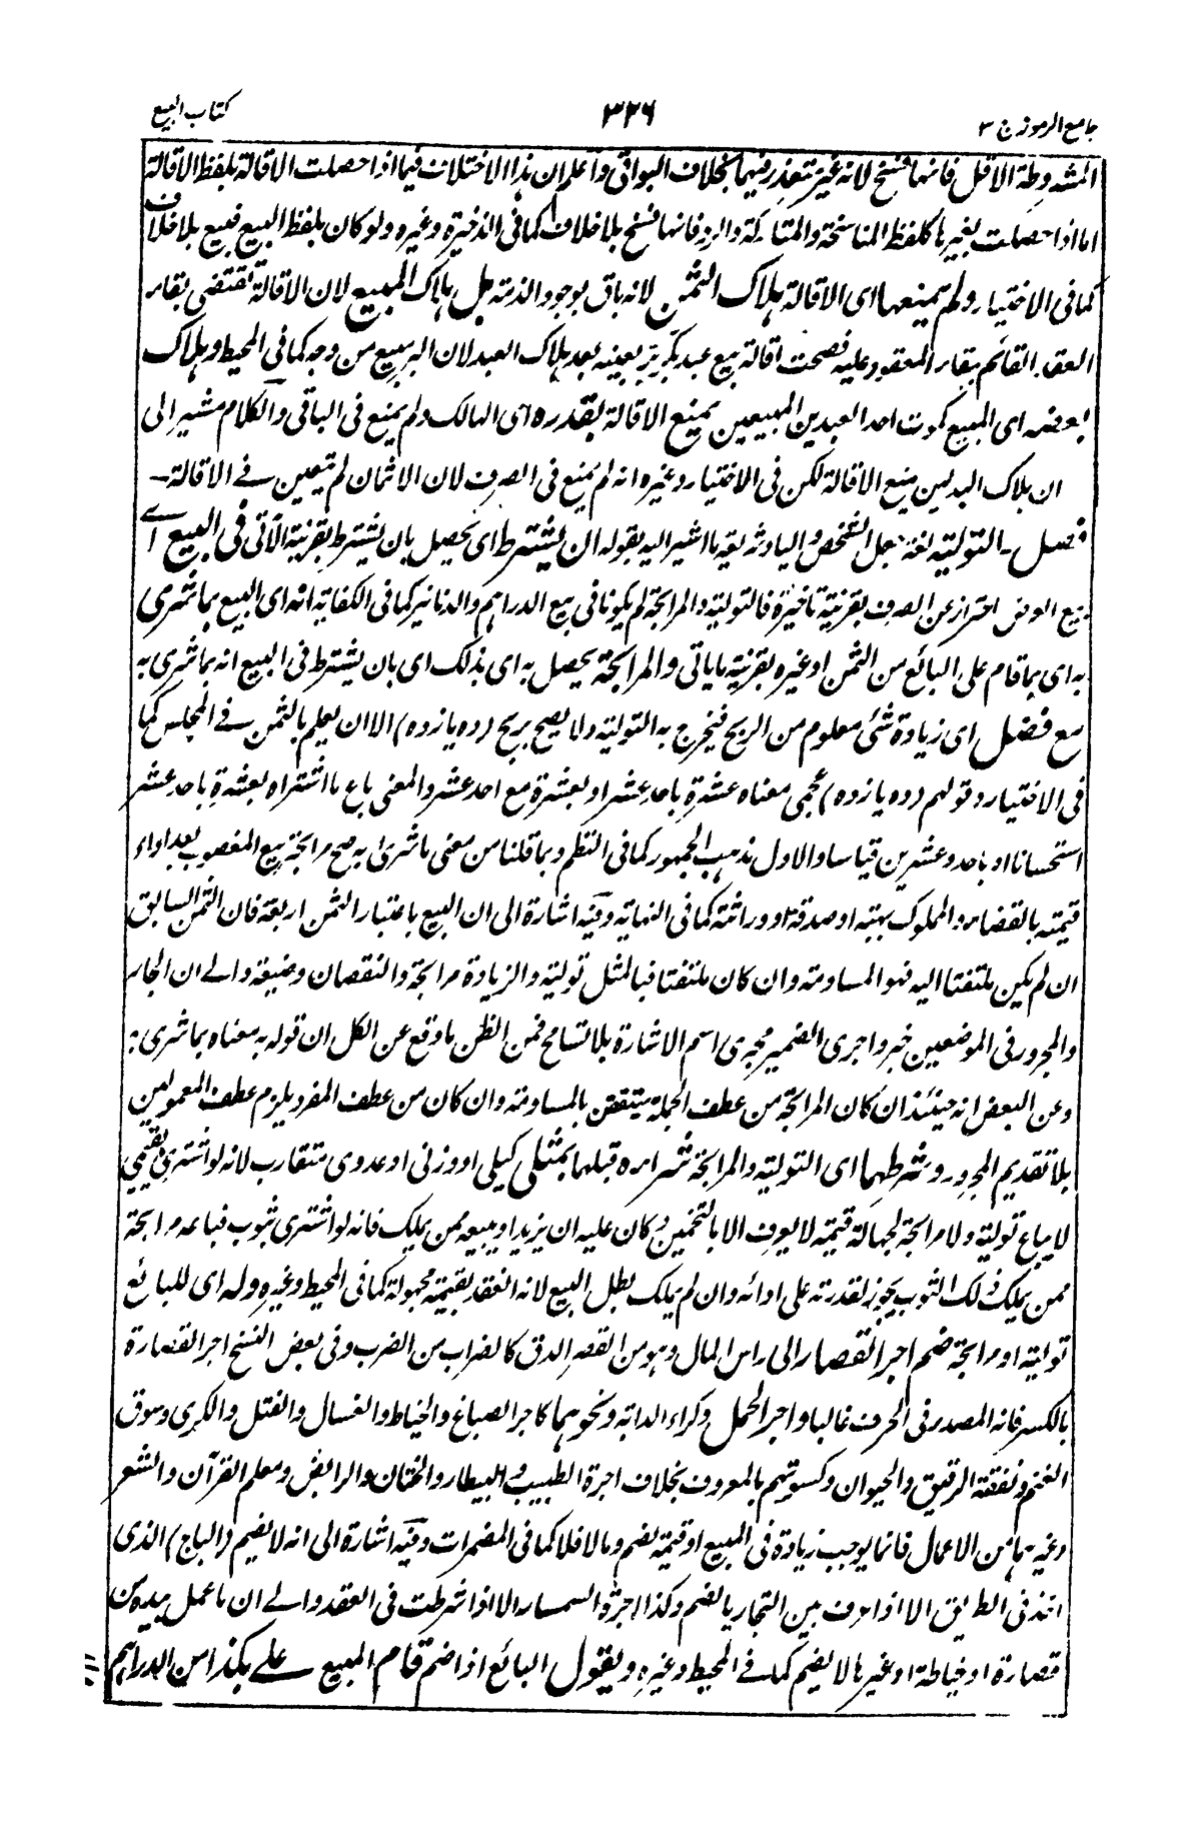 جامع الرموز ج ٣
٣٢٦
كتاب البيع
المشروطة الاقل فانها فسخ لانه غير متعذر فيهما بخلاف البواقى وآعلم ان هذا الاختلاف فيما اذا حصلت الاقالة بلفظ الاقالة
اما اذا حصلت بغيرها كلفظ المفاسخة والمتاركة والرد فانها فسخ بلا خلاف كما فى الذخيرة وغيره ولو كان بلفظ البيع فبيع بلا خلاف
كما فى الاختيار ولم يمنعها اى الاقالة هلاك الثمن لانه باق بوجود الذمة بل هلاك المبيع لان الاقالة تقتضى بقاء
العقد القائم ببقاء المعقود عليه فصحت اقالة بيع عبد بكر بر بعينه بعد هلاك العبد لان البر مبيع من وجه كما فى المحيط وهلاك
بعضه اى المبيع كموت احد العبدين المبيعين يمنع الاقالة بقدره اى الهالك ولم يمنع فى الباقى والكلام مشير الى
ان هلاك البدلين يمنع الاقالة لكن فى الاختيار وغيره انه لم يمنع فى الصرف لان الاثمان لم تتعين فے الاقالة۔
فصل۔ التولية لغة جعل الشخص واليا وشريعة ما اشير اليه بقوله ان يشترط اى يحصل بان يشترط بقرينة الآتى فى البيع اے
بيع العرض احتراز عن الصرف بقرينة تاخيره فالتولية والمرابحة لم يكونا فى بيع الدراهم والدنانير كما فى الكفاية انه اى البيع بما شرى
به اى بما قام على البائع من الثمن او غيره بقرينة ما ياتى والمرابحة يحصل به اى بذلك اى بان يشترط فى البيع انه بما شرى به
مع فضل اى زيادة شئ معلوم من الربح فيخرج به التولية ولا يصح بربح (ده يازده) الا ان يعلم بالثمن فے المجلس كما
فى الاختيار وقولهم (ده يازده) عجمى معناه عشرة باحد عشر او بعشرة مع احد عشر والمعنى باع ما اشتراه بعشرة باحد عشر
استحسانا او باحد وعشرين قياسا والاول مذهب الجمهور كما فى النظم وبما قلنا من معنى ما شرى به صح مرابحة بيع المغصوب بعد اداء
قيمته بالقضاء والمملوك بهبة او صدقة او وراثة كما فى النهاية وفيه اشارة الى ان البيع باعتبار الثمن اربعة فان الثمن السابق
ان لم يكن ملتفتا اليه فهو المساومة وان كان ملتفتا فبالمثل تولية والزيادة مرابحة والنقصان وضيعة والے ان الجار
والمجرور فى الموضعين خبر واجرى الضمير مجرى اسم الاشارة بلا تسامح فمن الظن ما وقع عن الكل ان قوله به معناه بما شرى به
وعن البعض انه حينئذ ان كان المرابحة من عطف الجملة ينتقض بالمساومة وان كان من عطف المفرد يلزم عطف المعمولين
بلا تقديم المجرور وشرطهما اى التولية والمرابحة شراءه قبلهما بمثلى كيلى او وزنى او عددى متقارب لانه لو اشترى بقيمى
لا يباع تولية ولا مرابحة لجهالة قيمته لا يعرف الا بالتخمين وكان عليه ان يزيد او يبيعه ممن يملك فانه لو اشترى بثوب فباعه مرابحة
ممن يملك ذلك الثوب يجوز لقدرته على ادائه وان لم يملك بطل البيع لانه انعقد بقيمة مجهولة كما فى المحيط وغيره وله اى للبائع
تولية او مرابحة ضم اجر القصار الى راس المال وهو من القصر الدق كالضراب من الضرب وفى بعض النسخ اجر القصارة
بالكسر فانه المصدر فى الحرف غالبا واجر الحمل وكراء الدابة ونحوهما كاجر الصباغ والخياط والغسال والفتل والكرى وسوق
الغنم ونفقة الرقيق والحيوان وكسوتهم بالمعروف بخلاف اجرة الطبيب والبيطار والختان والرائض ومعلم القرآن والشعر
وغيرها من الاعمال فانما يوجب زيادة فى المبيع او قيمته يضم وما لا فلا كما فى المضمرات وفيه اشارة الى انه لا يضم (الباج) الذى
اخذ فى الطريق الا اذا عرف بين التجار بالضم وكذا اجرة السمسار الا اذا شرطت فى العقد والے ان ما عمل بيده من
قصارة او خياطة او غيرها لا يضم كما فے المحيط وغيره ويقول البائع اذا ضم قام المبيع علے بكذا من الدراهم